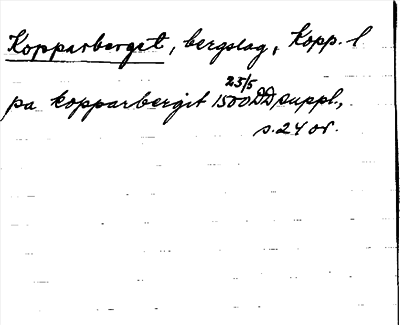 Kopparberget, bergslag, Kopp. l
pa kopparbergit 1500 23/5 DD suppl.,
s. 24 or.